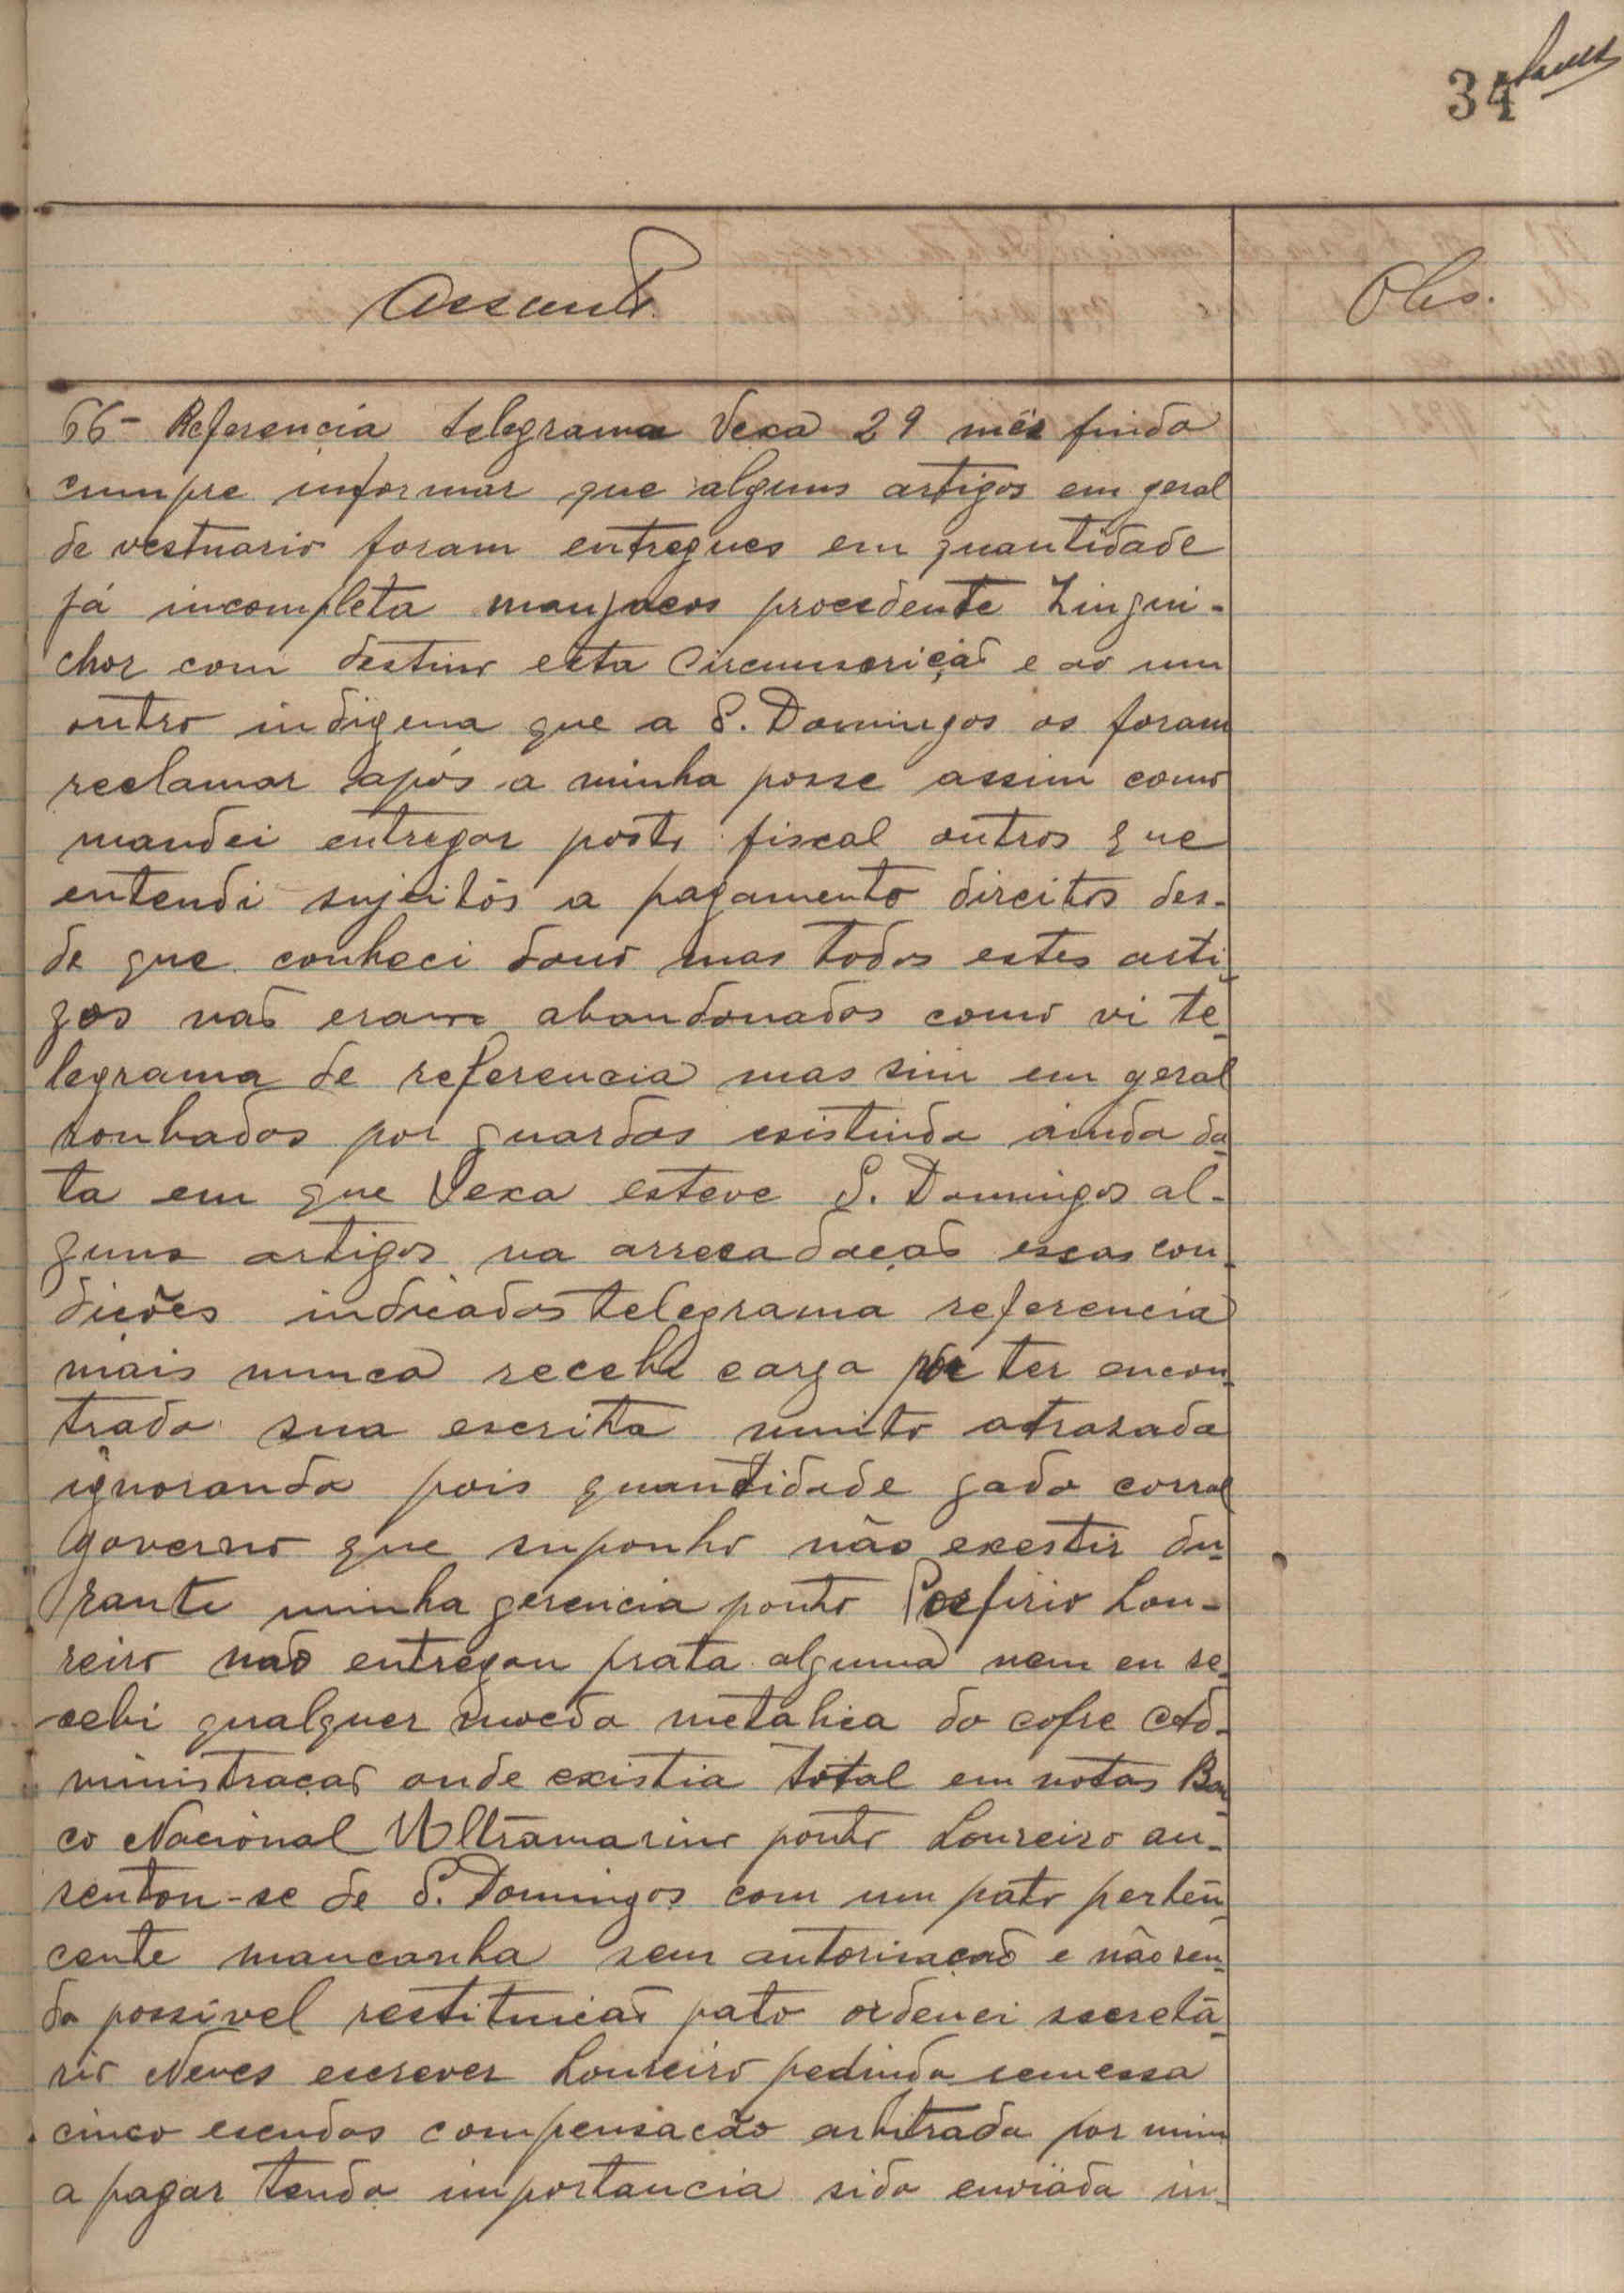 34
Assunto
Obs.
66- Referencia telegrama Vexa 29 mês findo
cumpre informar que alguns artigos em geral
de vestuario foram entregues em quantidade
já incompleta manjacos procedente Zingui-
chor com destino esta Circunscrição e ao um
outro indigena que a S. Domingos os foram
reclamar após a minha posse assim como
mandei entregar posto fiscal outros que
entendi sujeitos a pagamento direitos des-
de que conheci dono mas todos estes arti-
gos não eram abandonados como vi te-
legrama de referencia mas sim em geral
roubados por guardas existindo ainda da-
ta em que Vexa esteve S. Domingos al-
guns artigos na arrecadação essas con-
dições indicados telegrama referencia
mais nunca recebi carga por ter encon-
trado sua escrita muito atrazada
ignorando pois quantidade gado corral
governo que suponho não exestir du-
rante minha gerencia ponto Porfirio Lou-
reiro não entregou prata alguma nem eu re-
cebi qualquer moeda metalica do cofre Ad-
ministração onde existia total em notas Ban-
co Nacional Ultramarino ponto Loureiro au-
sentou-se de S. Domingos com um pato perten-
cente mancanha sem autorisação e não sen-
do possivel restituição pato ordenei secretá-
rio Neves escrever Loureiro pedindo remessa
cinco escudos compensação arbitrada por mim
a pagar tendo importancia sido enviada in-